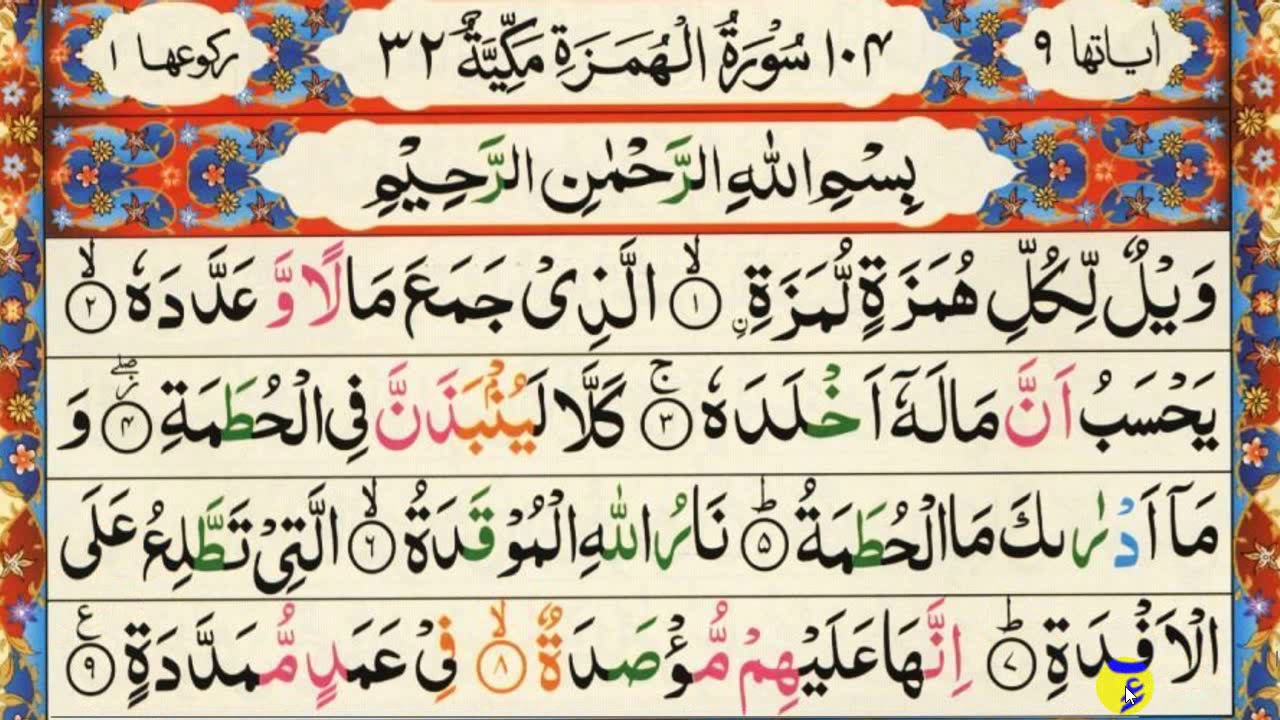 اٰیاتها ۹ ۱۰۴ سُوْرَةُ الْهُمَزَةِ مَكِّیَّةٌ ۳۲ رکوعها ۱
بِسْمِ اللّٰهِ الرَّحْمٰنِ الرَّحِیْمِ
وَیْلٌ لِّكُلِّ هُمَزَةٍ لُّمَزَةِ ۙ﹙۱﹚ الَّذِیْ جَمَعَ مَالًا وَّ عَدَّدَهٗ ۙ﹙۲﹚
یَحْسَبُ اَنَّ مَالَهٗۤ اَخْلَدَهٗ ۚ﹙۳﹚ كَلَّا لَیُنْۢبَذَنَّ فِی الْحُطَمَةِ ﹙۴﹚ وَ
مَاۤ اَدْرٰىكَ مَا الْحُطَمَةُ ؕ﹙۵﹚ نَارُ اللّٰهِ الْمُوْقَدَةُ ۙ﹙۶﹚ الَّتِیْ تَطَّلِعُ عَلَی
الْاَفْـِٕدَةِ ؕ﹙۷﹚ اِنَّهَا عَلَیْهِمْ مُّؤْصَدَةٌ ۙ﹙۸﹚ فِیْ عَمَدٍ مُّمَدَّدَةٍ ﹙۹﹚ ع